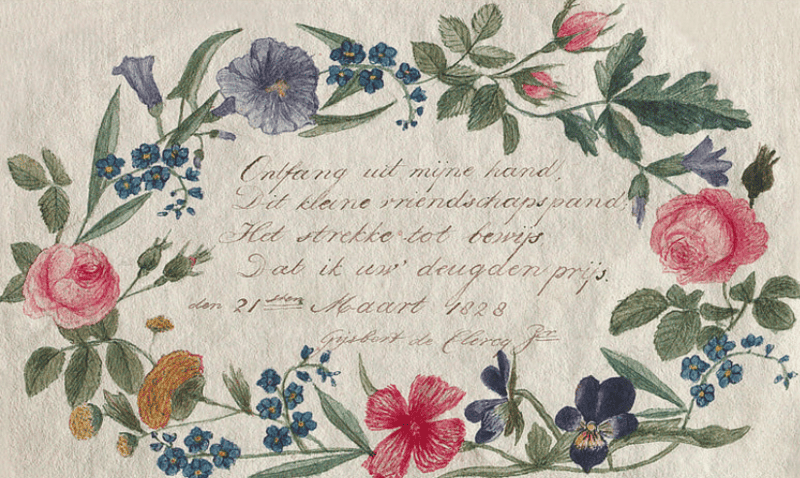 Ontfang uit mijne hand,
Dit kleine vriendschapspand;
Het strekke tot bewijs
Dat ik uw' deugden prijs.
den 21sten Maart 1828
Gijsbert de Clercq Pz